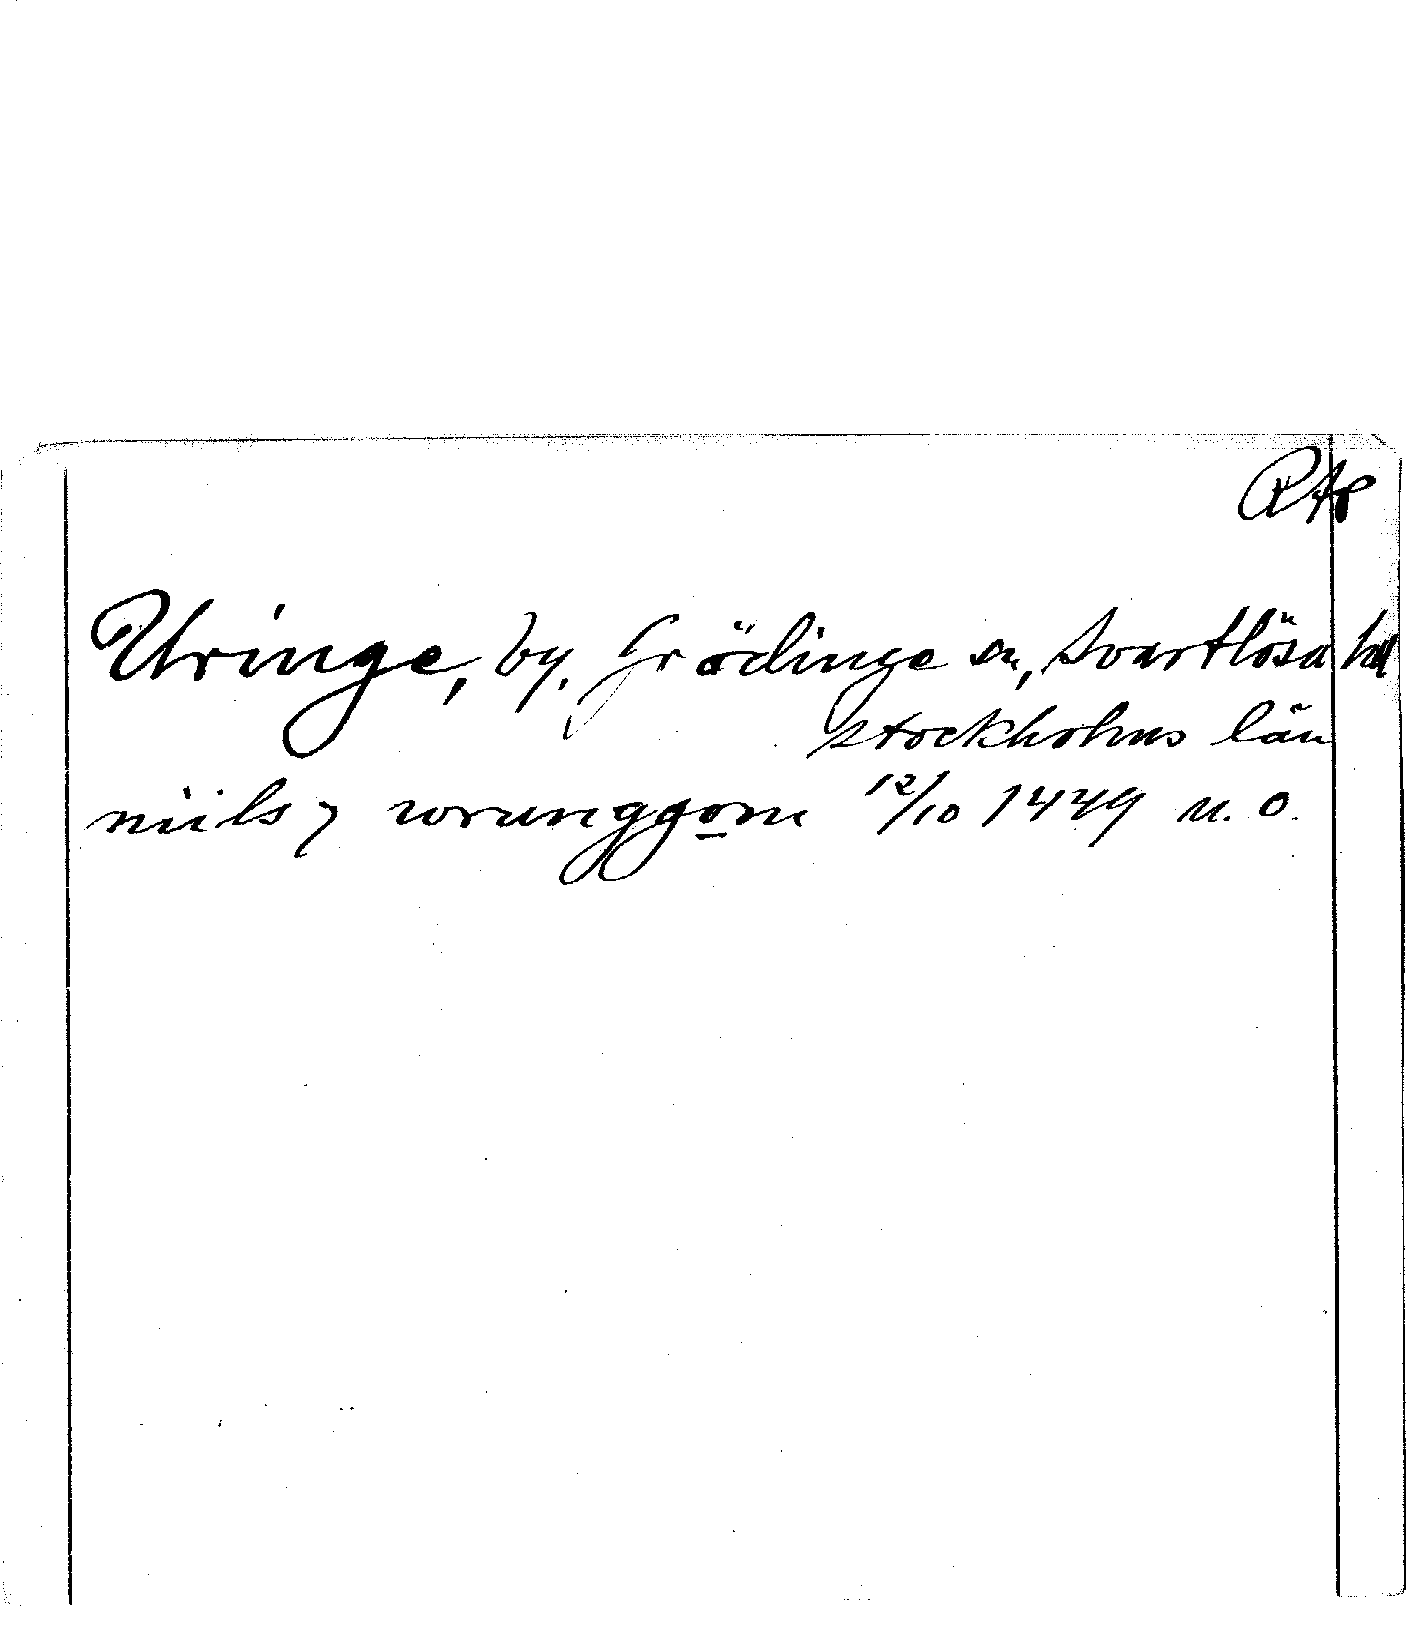 RAp
Uringe, by, Grödinge sn, Svartlösa hd
Stockholms län
niils j wrunggom 12/10 1449 u. o.